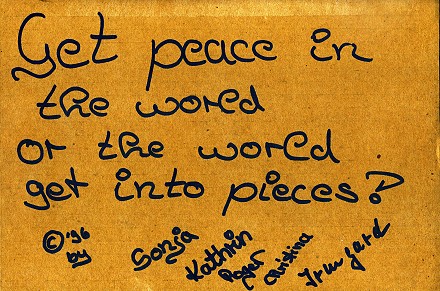 Get peace in
the world
or the world
get into pieces?
© '96 by Sonja Kathrin Roger Christina Irmgard